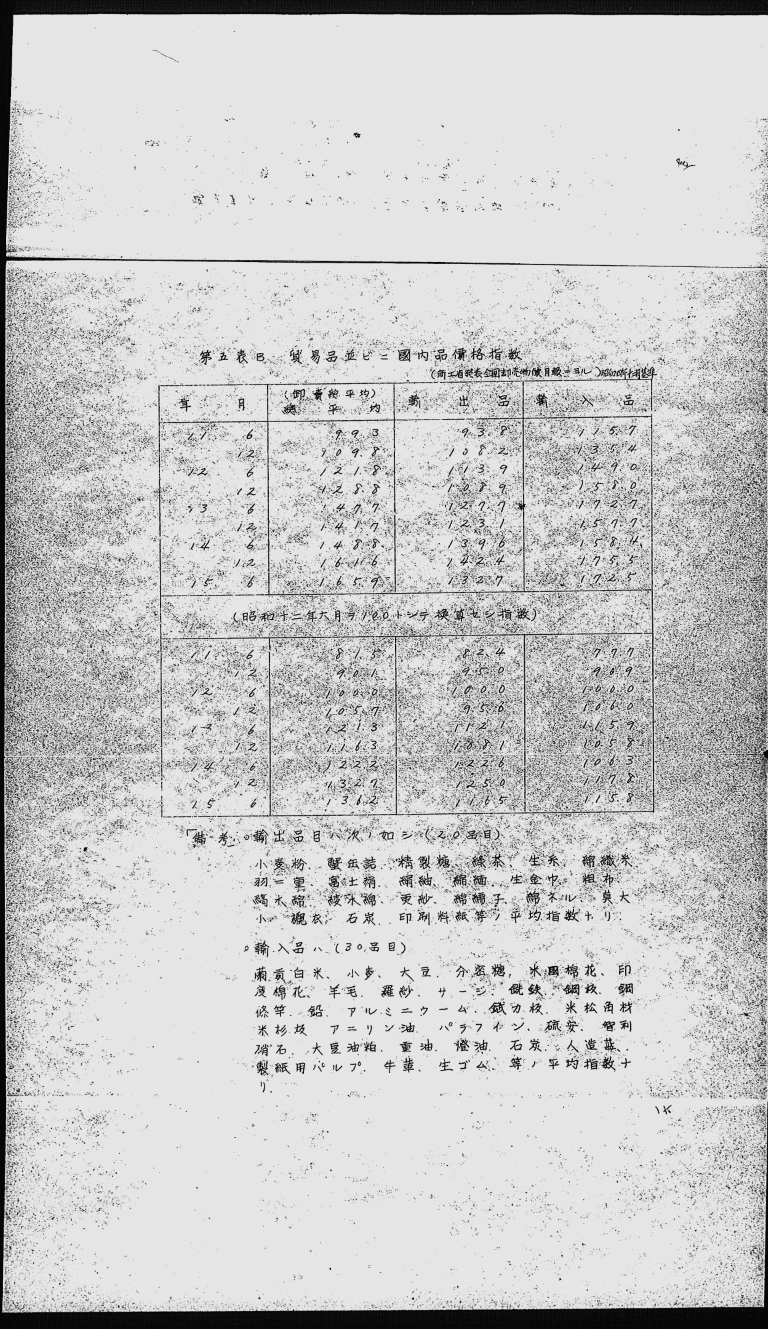 第五表B 貿易品並ビニ國内品價格指数
年 月 (卸賣総平均) 總平均 輸出品 輸入品
11 6 993 938 1157
12 1098 1082 1354
12 6 1218 1139 1490
12 1288 1089 1580
13 6 1477 1277 1727
12 1417 1231 1577
14 6 1488 1396 1584
12 1616 1424 1755
15 6 1659 1327 1725
(昭和十二年六月ヲ100トシテ換算セシ指数)
11 6 815 824 777
12 901 950 909
12 6 1000 1000 1000
12 1057 956 1060
13 6 1213 1121 1159
12 1163 1081 1058
14 6 1222 1226 1063
12 1327 1250 1178
15 6 1362 1165 1158
備考 ○輸出品目ハ次ノ如シ(20品目)
小麦粉、蟹缶詰、精製糖、緑茶、生糸、
羽二重、富士絹、絹紬、生金巾、粗布、
綾木綿、更紗、綿繻子、綿ネル、莫大
小、襯衣、石炭、印刷料紙等ノ平均指数ナリ
○輸入品ハ(30品目)
蘭貢白米、小麦、大豆、分蜜糖、米國棉花、印
度棉花、羊毛、羅紗、サージ、銑鉄、鋼板、鋼
條竿、鉛、アルミニウーム、鉞力板、米松角材
米杉板、アニリン油、パラフイン、硫安、智利
硝石、大豆油粕、重油、燈油、石炭、人造藍、
製紙用パルプ、牛革、生ゴム、等ノ平均指数ナ
リ